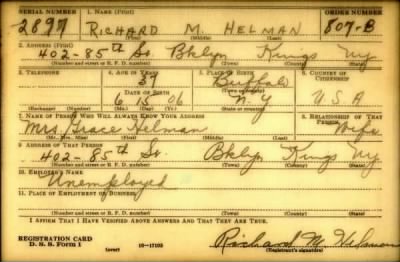 SERIAL NUMBER 1. NAME (Print) ORDER NUMBER
2897 RICHARD M. HELMAN 807-B
(First) (Middle) (Last)
2. ADDRESS (Print)
402-85th St. Bklyn Kings Ny
(Number and street or R. F. D. number) (Town) (County) (State)
3. TELEPHONE 4. AGE IN YEARS 5. PLACE OF BIRTH 6. COUNTRY OF CITIZENSHIP
Buffalo
DATE OF BIRTH (Town or county)
6 15 06 N. Y U S A
(Exchange) (Number) (Mo.) (Day) (Yr.) (State or country)
7. NAME OF PERSON WHO WILL ALWAYS KNOW YOUR ADDRESS 8. RELATIONSHIP OF THAT PERSON
Mrs Grace Helman Wife
(Mr., Mrs., Miss) (First) (Middle) (Last)
9. ADDRESS OF THAT PERSON
402-85th St. Bklyn Kings Ny
(Number and street or R. F. D. number) (Town) (County) (State)
10. EMPLOYER'S NAME
Unemployed
11. PLACE OF EMPLOYMENT OR BUSINESS
(Number and street or R. F. D. number) (Town) (County) (State)
I AFFIRM THAT I HAVE VERIFIED ABOVE ANSWERS AND THAT THEY ARE TRUE.
REGISTRATION CARD
D. S. S. FORM 1 (over) 16-17105 Richard M Helman
(Registrant's signature)